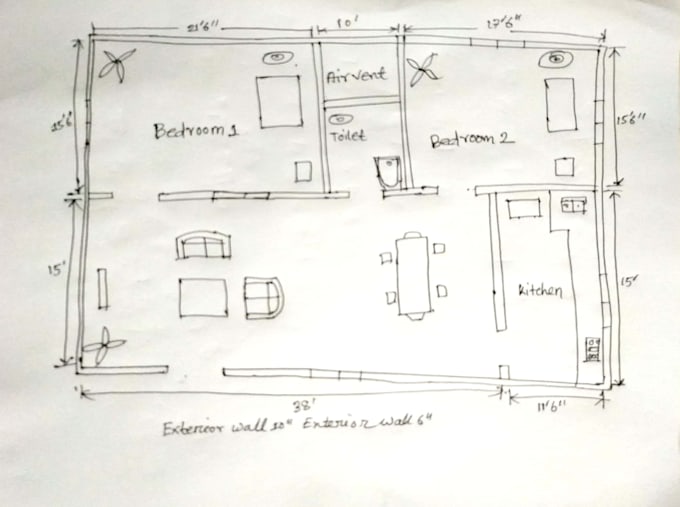 21'6" 10' 17'6"
Air vent
15'6"
Bedroom 1
Toilet
Bedroom 2
15'6"
15'
Kitchen
15'
38'
11'6"
Exterior wall 10" Exterior wall 6"